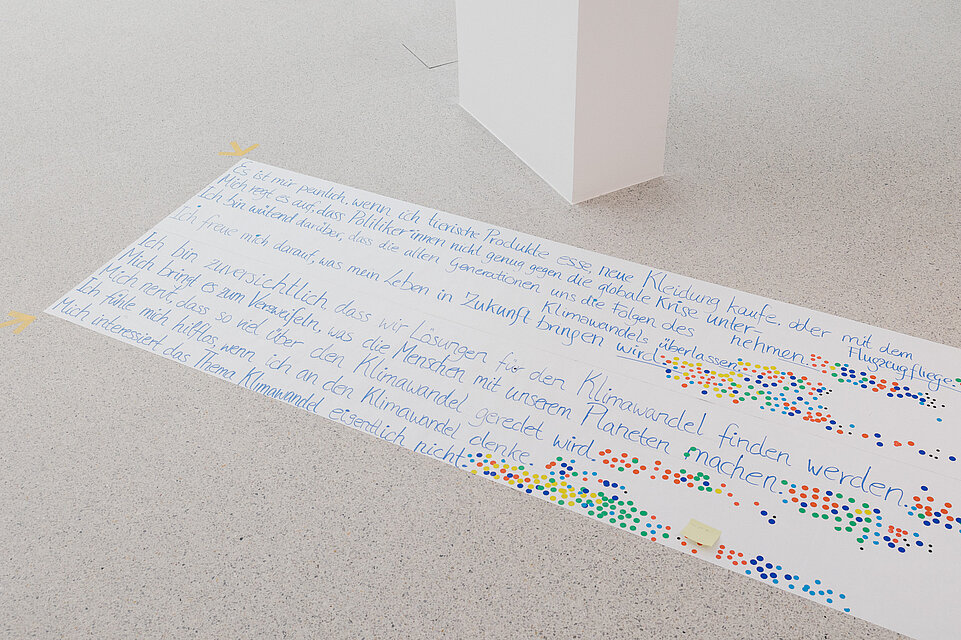 Es ist mir peinlich, wenn ich tierische Produkte esse, neue Kleidung kaufe, oder mit dem
Flugzeug fliege.
Mich regt es auf, dass Politiker*innen nicht genug gegen die globale Krise unter-
nehmen.
Ich bin wütend darüber, dass die alten Generationen uns die Folgen des
Klimawandels überlassen.
Ich freue mich darauf, was mein Leben in Zukunft bringen wird.
Ich bin zuversichtlich dass wir Lösungen für den Klimawandel finden werden.
Mich bringt es zum Verzweifeln, was die Menschen mit unserem Planeten machen.
Mich nervt, dass so viel über den Klimawandel geredet wird.
Ich fühle mich hilflos, wenn ich an den Klimawandel denke.
Mich interessiert das Thema Klimawandel eigentlich nicht.